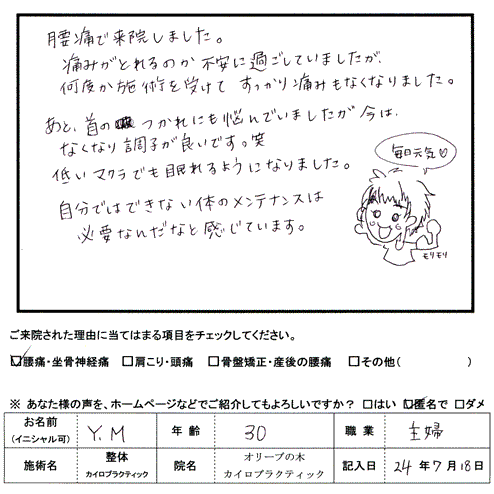 腰痛で来院しました。
痛みがとれるのか不安に過ごしていましたが、
何度か施術を受けて すっかり痛みもなくなりました。
あと、首の つかれにも悩んでいましたが今は、
なくなり調子が良いです。笑
低いマクラでも眠れるようになりました。
自分ではできない体のメンテナンスは
必要なんだなと感じています。
毎日元気♡
モリモリ
ご来院された理由に当てはまる項目をチェックしてください。
☑腰痛・坐骨神経痛 □肩こり・頭痛 □骨盤矯正・産後の腰痛 □その他( )
※ あなた様の声を、ホームページなどでご紹介してもよろしいですか? □はい ☑匿名で □ダメ
お名前 (イニシャル可) Y.M 年 齢 30 職 業 主婦
施術名 整体 カイロプラクティック 院名 オリーブの木 カイロプラクティック 記入日 24年7月18日